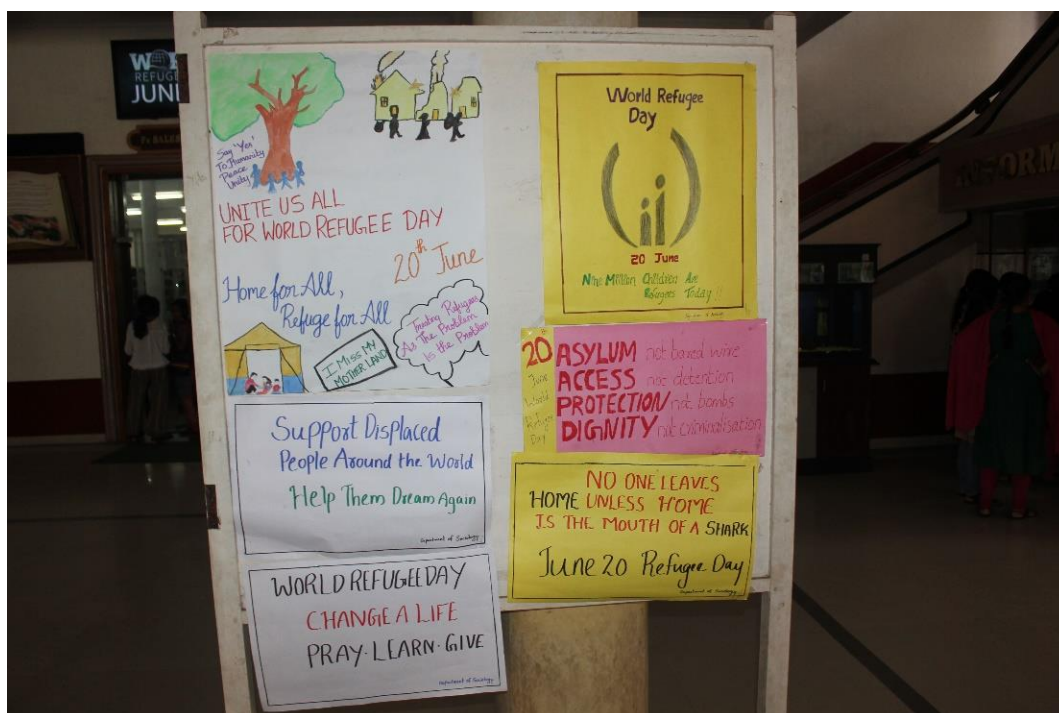 REFUGEE
JUN
Say 'Yes'
To Humanity
Peace
Unity
UNITE US ALL
FOR WORLD REFUGEE DAY
20th June
Home for All,
Refuge for All
I MISS MY
MOTHER LAND
Treating Refugees
As The Problem
Is the Problem
Support Displaced
People Around the World
Help Them Dream Again
Department of Sociology
WORLD REFUGEE DAY
CHANGE A LIFE
PRAY·LEARN·GIVE
Department of Sociology
World Refugee
Day
20 June
Nine Million Children Are
Refugees Today !!
20
June
World
Refugee
Day
ASYLUM not barred wire
ACCESS not detention
PROTECTION not bombs
DIGNITY not criminalisation
NO ONE LEAVES
HOME UNLESS HOME
IS THE MOUTH OF A SHARK
June 20 Refugee Day
Department of Sociology